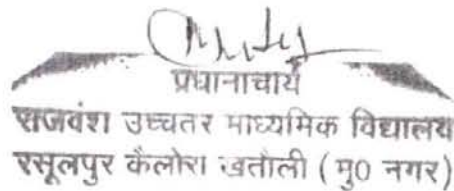 प्रधानाचार्य
राजवंश उच्चतर माध्यमिक विद्यालय
रसूलपुर कैलोरा खतौली ( मु0 नगर )